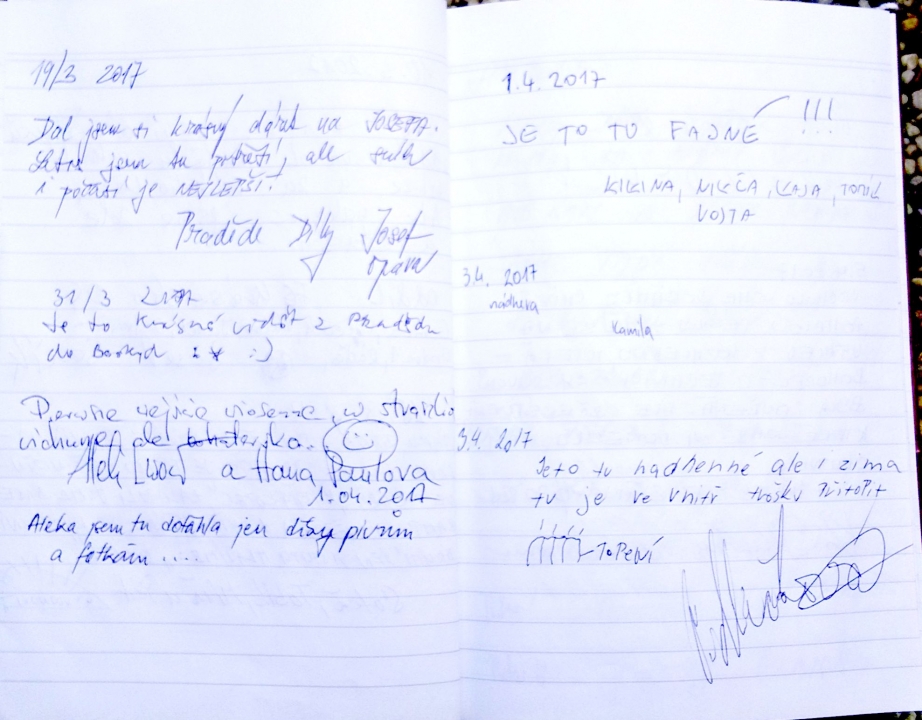 19/3 2017
Dal jsem si krásný dárek na JOSEFA.
jsem tu ale
i počasí je NEJLEPŠÍ.
Praděde Díky Josef
Opava
31/3 2017
Je to krásné vidět z Pradědu
do Beskyd :* :)
Pierwsze wejście wiosenne, w straszną
wichurę, ale
Alek a Hana Pavlova
1.04.2017
Aleka jsem tu dotáhla jen díky pivům
a fotkám ...
1.4.2017
JE TO TU FAJNÉ !!!
KIKINA, NIKČA, KAJA, TONÍK
VOJTA
3.4. 2017
nádhera
Kamila
3.4. 2017
Jeto tu nadherné ale i zima
tu je ve vnitř trošku Přitopit
TOPENÍ